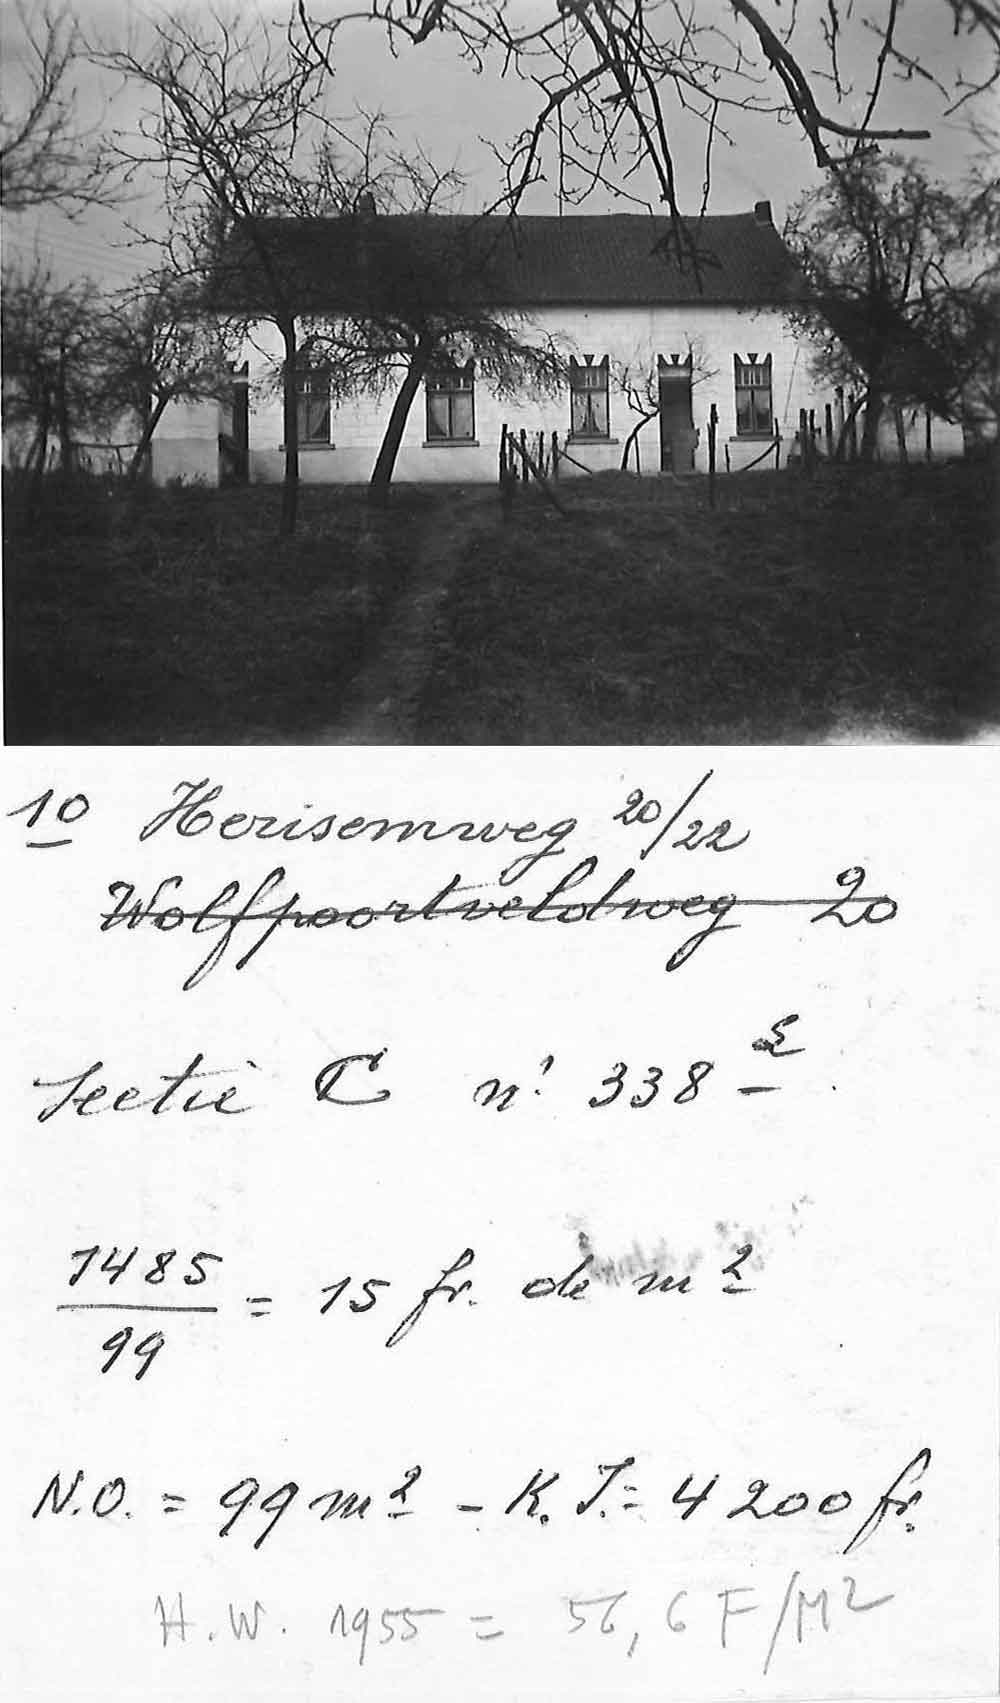 10 Herisemweg 20/22
Wolfpoortveldweg 20
Sectie C n! 338
1485
99
= 15 fr. de m2
N.O. = 99 m2 - K.I. = 4200 fr.
H.W. 1955 = 56,6 F/M2